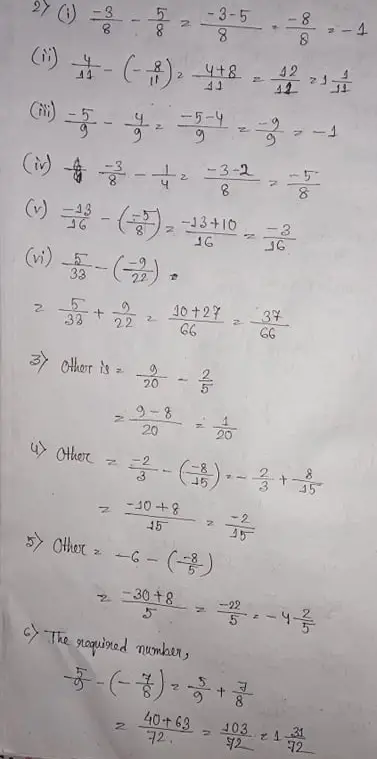 2) (i) -3/8 - 5/8 = -3-5/8 = -8/8 = -1
(ii) 4/11 - (-8/11) = 4+8/11 = 12/11 = 1 1/11
(iii) -5/9 - 4/9 = -5-4/9 = -9/9 = -1
(iv) -3/8 - 1/4 = -3-2/8 = -5/8
(v) -13/16 - (-5/8) = -13+10/16 = -3/16
(vi) 5/33 - (-9/22) =
= 5/33 + 9/22 = 10+27/66 = 37/66
3) Other is = 9/20 - 2/5
= 9-8/20 = 1/20
4) Other = -2/3 - (-8/15) = -2/3 + 8/15
= -10+8/15 = -2/15
5) Other = -6 - (-8/5)
= -30+8/5 = -22/5 = -4 2/5
6) The required number,
5/9 - (-7/8) = 5/9 + 7/8
= 40+63/72 = 103/72 = 1 31/72